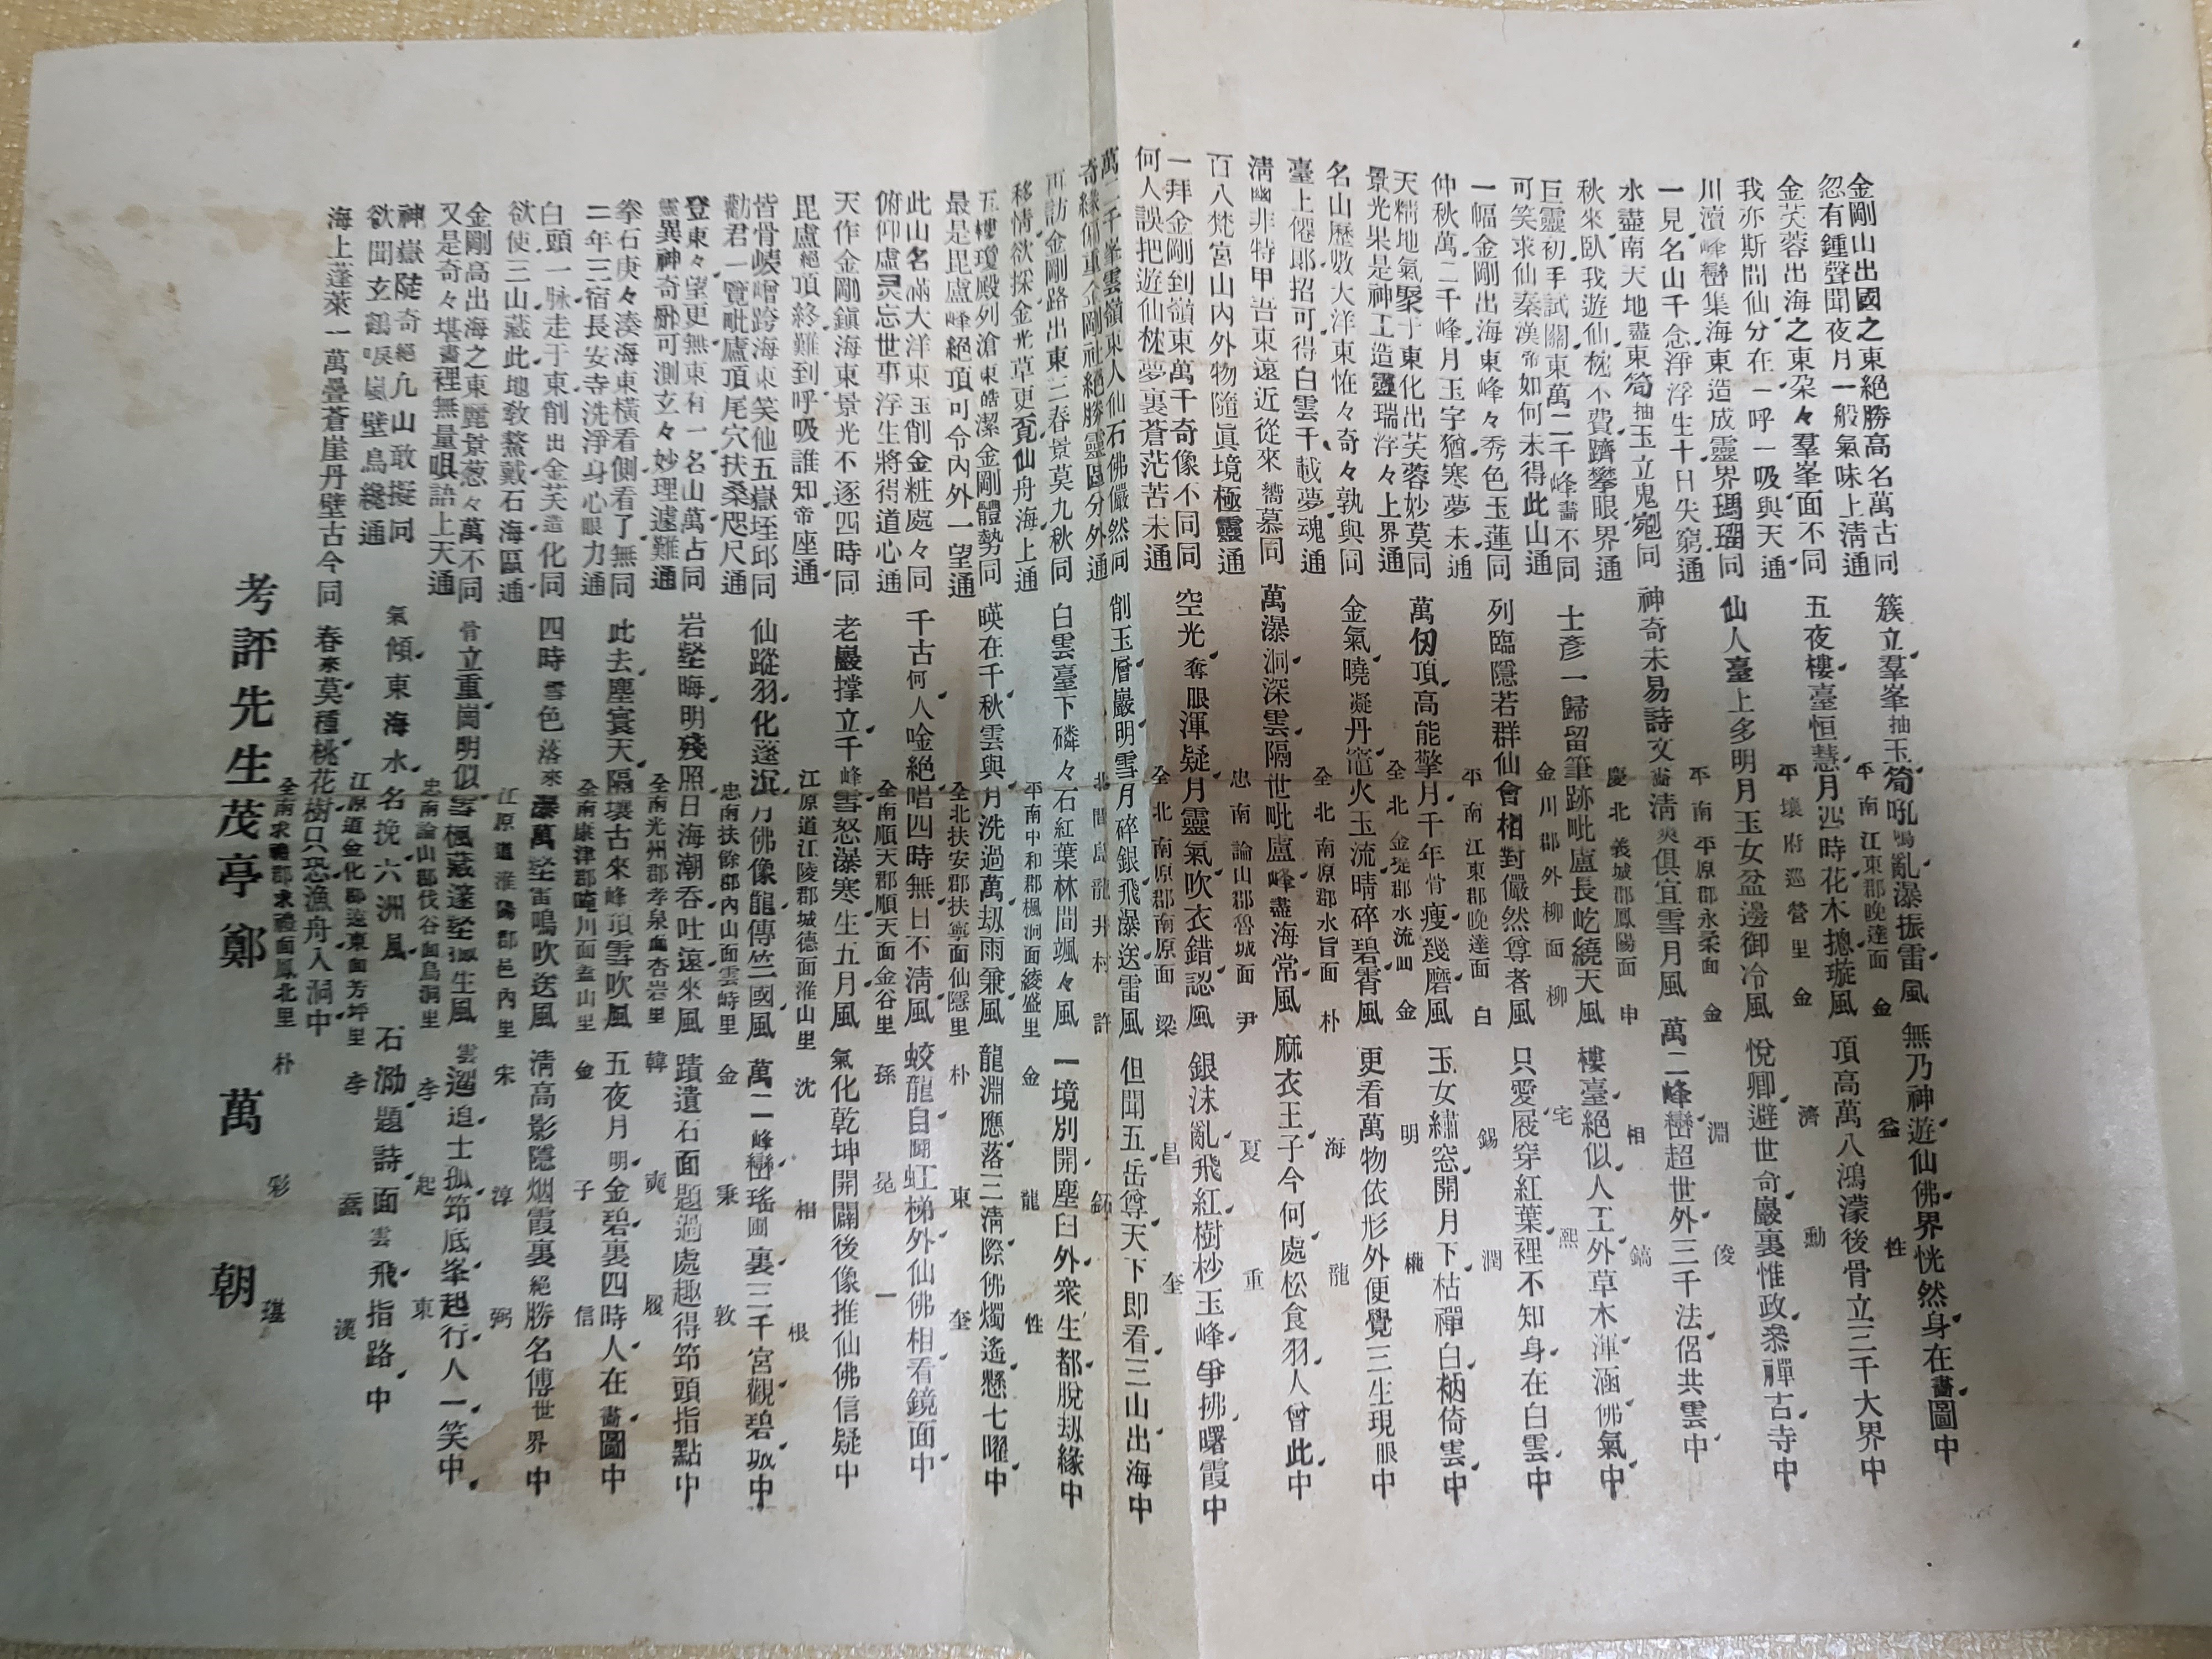 金剛山出國之東絶勝高名萬古同 簇立羣峯抽玉筍吼鳴亂瀑振雷風 無乃神遊仙佛界恍然身在畵圖中
忽有鍾聲聞夜月一般氣味上淸通 平南江東郡晚達面 金益性
金芙蓉出海之東朶々羣峯面不同 五夜樓臺恒慧月四時花木摠璇風 頂高萬八鴻濛後骨立三千大界中
我亦斯間仙分在一呼一吸與天通 平壤府巡營里 金濟勳
川瀆峰巒集海東造成靈界瑪瑠同 仙人臺上多明月玉女盆邊御冷風 悅卿避世奇巖裏惟政叅禪古寺中
一見名山千念淨浮生十日失窮通 平南平原郡永柔面 金淵俊
水盡南天地盡東筍抽玉立鬼剜同 神奇未易詩文畵淸爽俱宜雪月風 萬二峰巒超世外三千法侶共雲中
秋來臥我遊仙枕不費躋攀眼界通 慶北義城郡鳳陽面 申相鎬
巨靈初手試關東萬二千峰畵不同 士彥一歸留筆跡毗盧長屹繞天風 樓臺絕似人工外草木渾涵佛氣中
可笑求仙秦漢帝如何未得此山通 金川郡外柳面 柳宅熙
一幅金剛出海東峰々秀色玉蓮同 列臨隱若群仙會相對儼然尊者風 只愛屐穿紅葉裡不知身在白雲中
仲秋萬二千峰月玉宇猶寒夢未通 平南江東郡晚達面 白錫潤
天精地氣聚于東化出芙蓉妙莫同 萬仞頂高能擎月千年骨瘦幾磨風 玉女繡窓開月下枯禪白衲倚雲中
景光果是神工造靈瑞浮々上界通 全北金堤郡水流面 金明權
名山歷數大洋東恠々奇々孰與同 金氣曉凝丹竈火玉流晴碎碧霄風 更看萬物依形外便覺三生現眼中
臺上僊郞招可得白雲千載夢魂通 全北南原郡水旨面 朴海龍
淸國非特甲吾東遠近從來嚮慕同 萬瀑洞深雲隔世毗盧峰盡海常風 麻衣王子今何處松食羽人曾此中
百八梵宮山內外物隨眞境極靈通 忠南論山郡魯城面 尹夏重
一拜金剛到嶺東萬千奇像不同同 空光奪眼渾疑月靈氣吹衣錯認風 銀沫亂飛紅樹杪玉峰爭拂曙霞中
何人誤把遊仙枕夢裏蒼茫苦未通 全北南原郡南原面 梁昌奎
萬二千峯雲嶺東人仙石佛儼然同 削玉層巖明雪月碎銀飛瀑送雷風 但聞五岳尊天下即看三山出海中
奇緣偏重金剛社絕勝靈區分外通 北間島龍井村 許鈺
再訪金剛路出東三春景莫九秋同 白雲臺下磷々石紅葉林間颯々風 一境別開塵臼外衆生都脫刼緣中
移情欲採金光草更覓仙舟海上通 平南中和郡楓洞面綾盛里 金龍性
五樓瓊殿列滄東皓潔金剛體勢同 暎在千秋雲與月洗過萬刼雨兼風 龍淵應落三淸際佛燭遙懸七曜中
最是毘盧峰絕頂可令內外一望通 全北扶安郡扶寧面仙隱里 朴東奎
此山名滿大洋東玉削金粧處々同 千古何人唫絕唱四時無日不淸風 蛟龍自鬪虹梯外仙佛相看鏡面中
俯仰虛灵忘世事浮生將得道心通 全南順天郡順天面金谷里 孫晃一
天作金剛鎭海東景光不逐四時同 老巖撑立千峰雪怒瀑寒生五月風 氣化乾坤開闢後像推仙佛信疑中
毘盧絕頂終難到呼吸誰知帝座通 江原道江陵郡城德面淮山里 沈相根
皆骨崚嶒跨海東笑他五嶽垤邱同 仙蹤羽化蓬沉月佛像龍傳竺國風 萬二峰巒瑤圃裏三千宮觀碧城中
勸君一覽毗廬頂尾穴扶桑咫尺通 忠南扶餘郡內山面雲峙里 金秉敦
登東々望更無東有一名山萬占同 岩壑晦明殘照日海潮吞吐遠來風 蹟遺石面題過處趣得筇頭指點中
靈異神奇那可測玄々妙理遽難通 全南光州郡孝泉面杏岩里 韓奭履
拳石庚々湊海東橫看側看了無同 此去塵寰天隔壤古來峰頂雪吹風 五夜月明金碧裏四時人在畵圖中
二年三宿長安寺洗淨身心眼力通 全南康津郡唵川面盖山里 金子信
白頭一脉走于東削出金芙造化同 四時雪色落來瀑萬壑雷鳴吹送風 淸高影隱烟霞裏絕勝名傳世界中
欲使三山藏此地敎鰲戴石海區通 江原道淮陽郡邑內里 宋淳弼
金剛高出海之東麗景葱々萬不同 骨立重崗明似雪楓藏邃壑生風 雲遊逈士孤筇底峯起行人一笑中
又是奇々堪畵裡無量咀語上天通 忠南論山郡伐谷面鳥洞里 李起東
神嶽陡奇絕九山敢擬同 氣傾東海水名挽六洲風 石泐題詩面雲飛指路中
欲聞玄鶴唳嵐壁鳥纔通 江原道金化郡遠東面芳坪里 李漢
海上蓬萊一萬疊蒼崖丹壁古今同 春來莫種桃花樹只恐漁舟入洞中
全南求禮郡求禮面鳳北里 朴彩琪
考評先生茂亭鄭萬朝